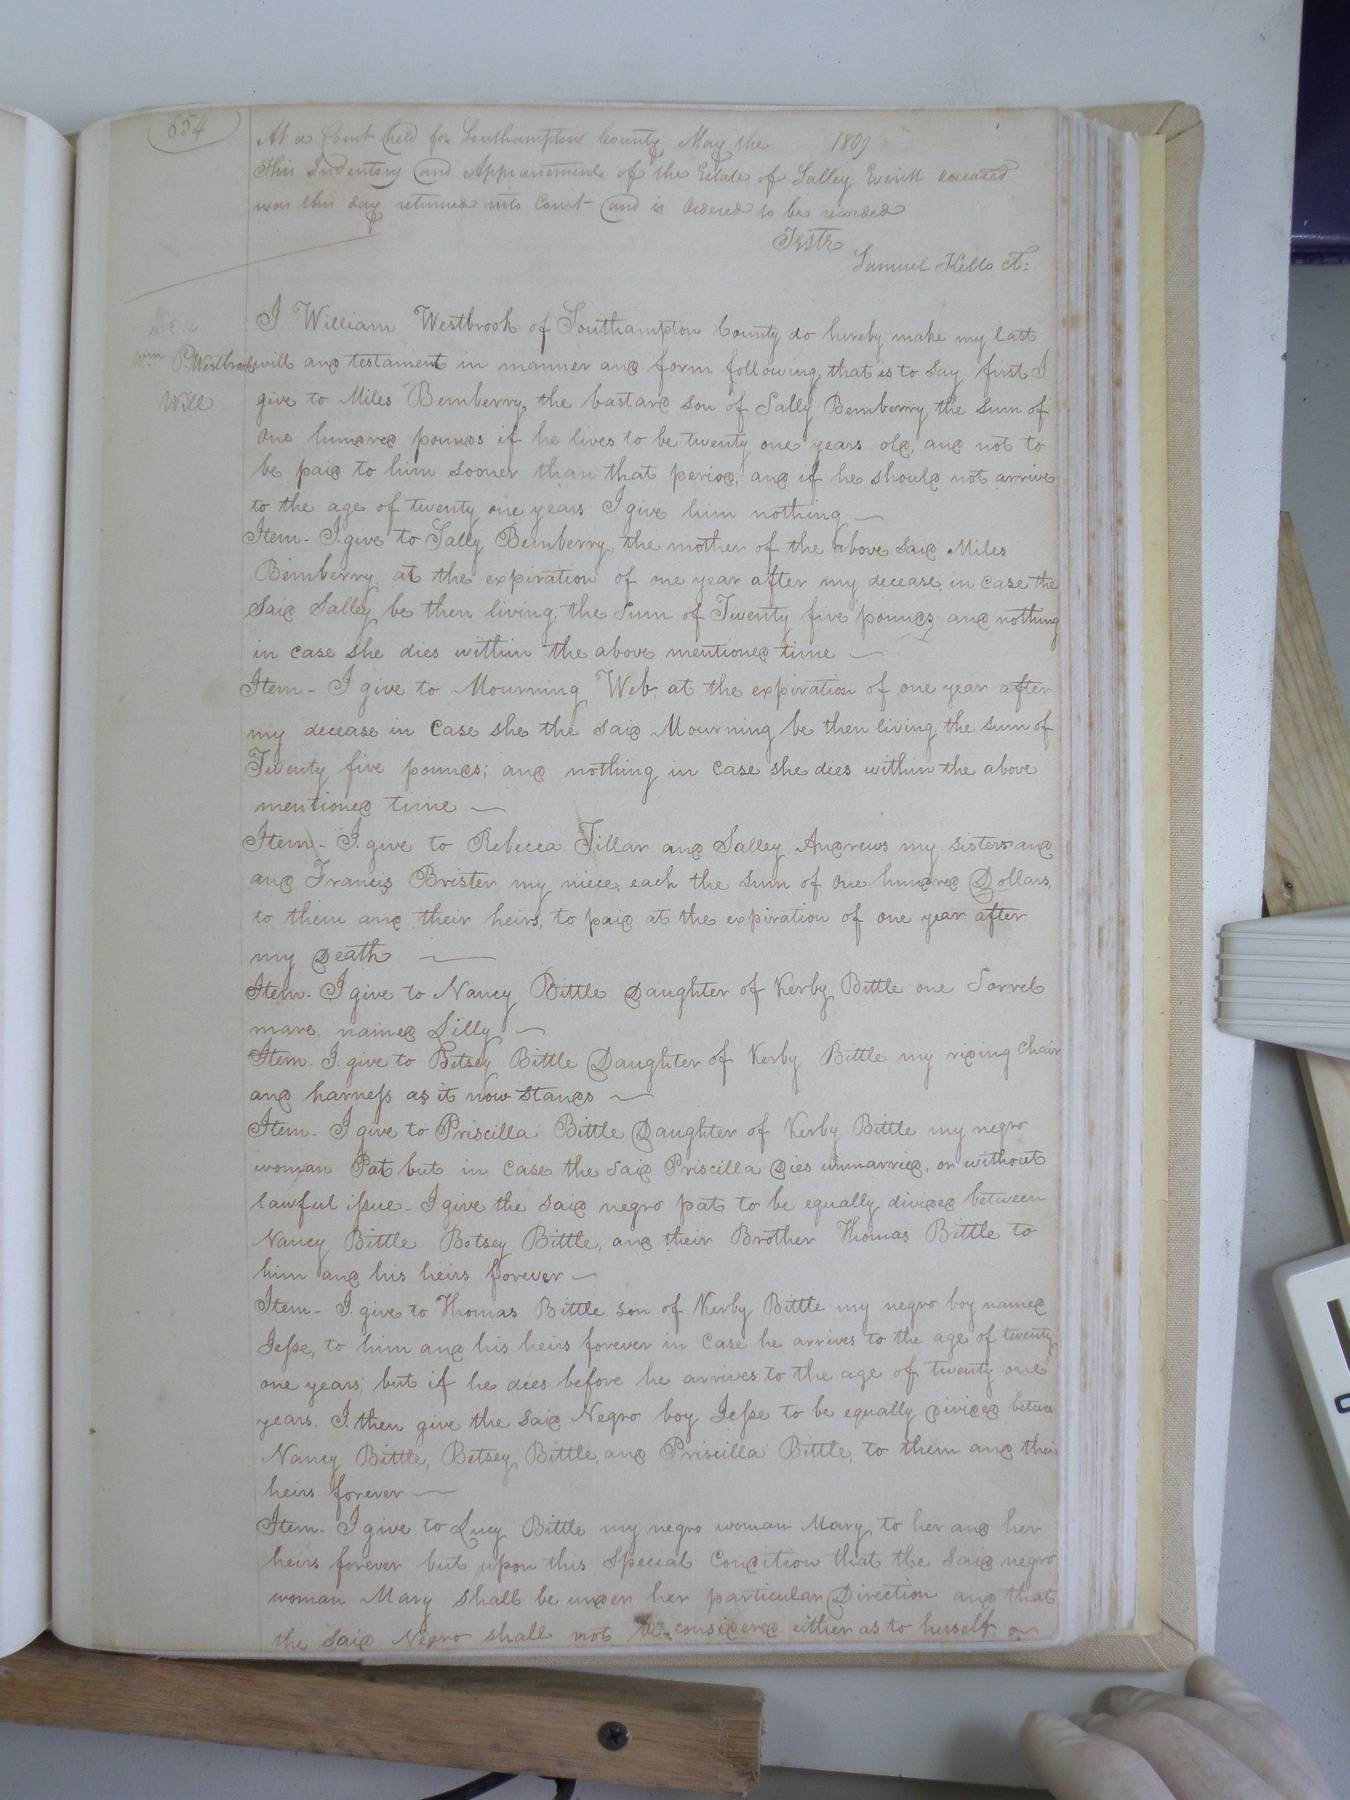 654
At a Court held for Southampton County May the 1809
This Inventory and Appraisement of the Estate of Salley deceased
was this day returned into Court and is Ordered to be recorded
Teste
Samuel Kello Ct:
Wm P. Westbrook
Will
I William Westbrook of Southampton County do hereby make my last
will and testament in manner and form following, that is to say first I
give to Miles Bemberry, the bastard son of Sally Bemberry, the sum of
One hundred pounds if he lives to be twenty one years old, and not to
be paid to him sooner than that period, and if he should not arrive
to the age of twenty one years I give him nothing —
Item - I give to Sally Bemberry, the mother of the above said Miles
Bemberry, at the expiration of one year after my decease, in case the
said Salley be then living, the sum of Twenty five pounds; and nothing
in case she dies within the above mentioned time —
Item - I give to Mourning Web. at the expiration of one year after
my decease in case she the said Mourning be then living the sum of
Twenty five pounds; and nothing in case she dies within the above
mentioned time —
Item - I give to Rebecca Tillar and Salley Andrews my sisters and
and Francis Brister my niece, each the sum of One hundred Dollars,
to them and their heirs, to paid at the expiration of one year after
my Death —
Item - I give to Nancy Bittle Daughter of Kerby Bittle one Sorrel
mare named Lilly —
Item. I give to Betsey Bittle Daughter of Kerby Bittle my riding chair
and harness as it now stands —
Item. I give to Priscilla Bittle Daughter of Kerby Bittle my negro
woman Pat but in case the said Priscilla dies unmarried, or without
lawful issue - I give the said negro pat to be equally divided between
Nancy Bittle Betsey Bittle, and their Brother Thomas Bittle to
him and his heirs forever —
Item - I give to Thomas Bittle son of Kerby Bittle my negro boy named
Jesse, to him and his heirs forever in case he arrives to the age of twenty
one years, but if he dies before he arrives to the age of twenty one
years. I then give the said Negro boy Jesse to be equally divided betwen
Nancy Bittle, Betsey Bittle, and Priscilla Bittle, to them and their
heirs forever —
Item - I give to Lucy Bittle my negro woman Mary to her and her
heirs forever but upon this Special Condition that the said negro
woman Mary shall be under her particular Direction and that
the said Negro shall not be considered either as to herself or